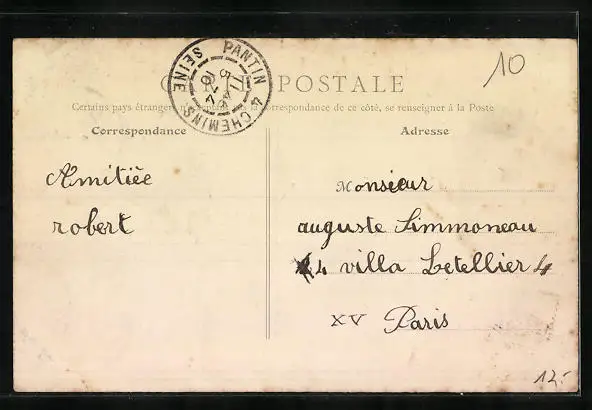 10
CARTE POSTALE
PANTIN 4 CHEMINS
SEINE
Certains pays étrangers n'acceptant pas la correspondance de ce côté, se renseigner à la Poste
Correspondance
Adresse
Amitiée
robert
Monsieur
auguste Simmoneau
4 villa Letellier 4
XV Paris
12.-